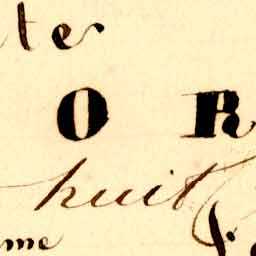 te
O R
huit
me